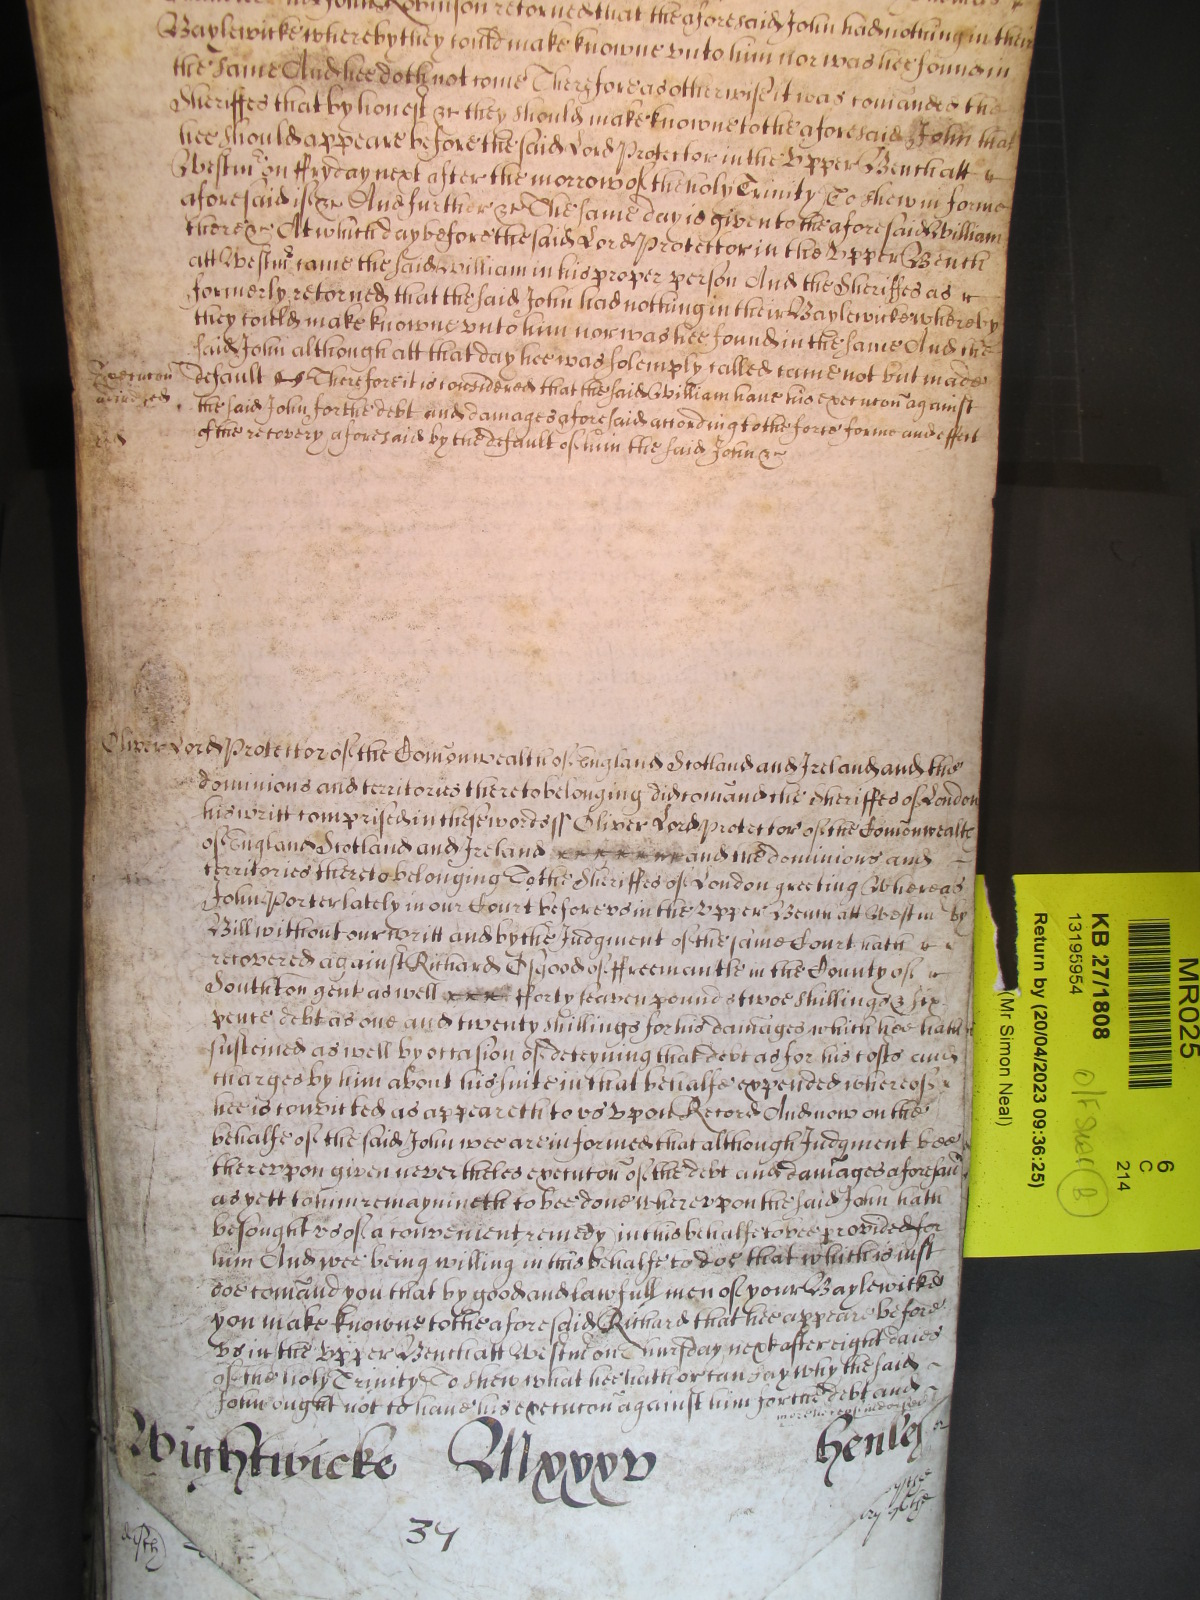 John Robinson retorned that the aforesaid John had nothing in their
Baylewicke whereby they could make knowne vnto him nor was hee found in
the same And hee doth not come Therefore as otherwise it was comanded the
Sheriffes that by honest &c they should make knowne to the aforesaid John that
hee should appeare before the said Lord Protector in the Vpper Bench att
Westmr on ffryday next after the morrow of the holy Trinity To shew in forme
aforesaid if &c And further &c The same day is given to the aforesaid William
there &c At which day before the said Lord Protector in the Vpper Bench
att Westmr came the said William in his proper person And the Sheriffes as
formerly retorned that the said John had nothing in their Baylewicke whereby
they could make knowne vnto him nor was hee found in the same And the
said John although att that day hee was solemply called came not but made
default Therefore it is considered that the said William haue his execucon against
the said John for the debt and damages aforesaid according to the force forme and effect
of the recovery aforesaid by the default of him the said John &c
Execucon
Oliver Lord Protector of the Comonwealth of England Scotland and Ireland and the
dominions and territories thereto belonging did comand the Sheriffes of London
his writt comprised in these words ss Oliver Lord Protector of the Comonwealth
of England Scotland and Ireland and the dominions and
territories thereto belonging To the Sheriffes of London greeting Whereas
John Porter lately in our Court before vs in the Vpper Bench att Westm by
Bill without our writt and by the Judgment of the same Court hath
recovered against Richard Osgood of ffreemantle in the County of
Southton gent as well fforty seaven pounds twoe shillings & six
pence debt as one and twenty shillings for his damages which hee hath
susteined as well by occasion of deteyning that debt as for his costs and
charges by him about his suite in that behalfe expended whereof
hee is convicted as appeareth to vs vpon Record And now on the
behalfe of the said John wee are informed that although Judgment bee
therevpon given nevertheles execucon of the debt and damages aforesaid
as yett to him remayneth to bee done wherevpon the said John hath
besought vs of a convenient remedy in this behalfe to bee provided for
him And wee being willing in this behalfe to doe that which is iust
doe comand you that by good and lawfull men of your Baylewicke
you make knowne to the aforesaid Richard that hee appeare before
vs in the Vpper Bench att Westm on Thursday next after eight daies
of the holy Trinity To shew what hee hath or can say why the said
John ought not to haue his execucon against him for the debt and
Wightwicke Mxxxv Henley
34
MR025
6
C
214
KB 27/1808
13195954
Return by (20/04/2023 09:36:25)
(Mr Simon Neal)